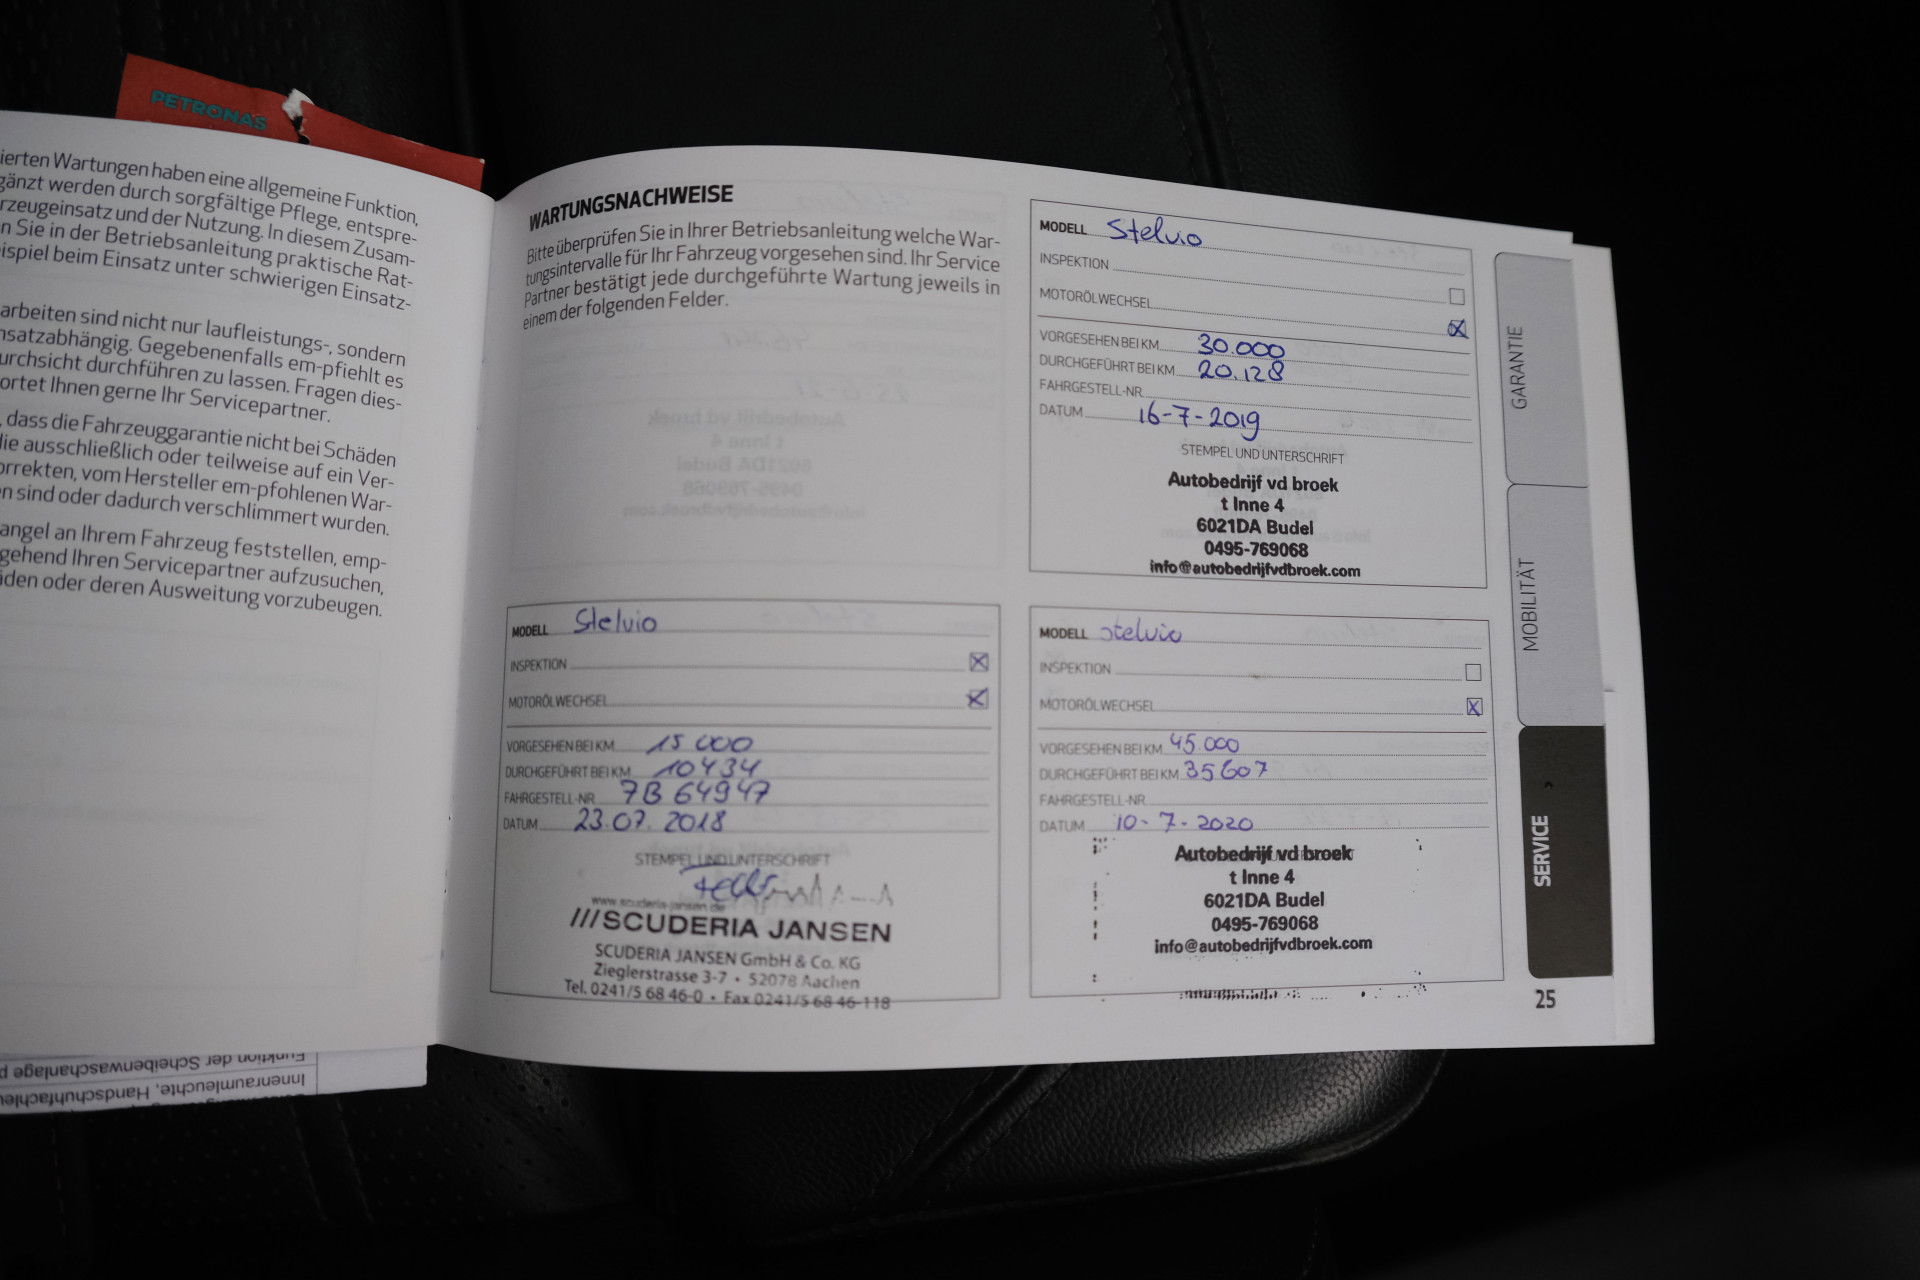 PETRONAS
ierten Wartungen haben eine allgemeine Funktion,
gänzt werden durch sorgfältige Pflege, entspre-
rzeugeinsatz und der Nutzung. In diesem Zusam-
n Sie in der Betriebsanleitung praktische Rat-
ispiel beim Einsatz unter schwierigen Einsatz-
arbeiten sind nicht nur laufleistungs-, sondern
nsatzabhängig. Gegebenenfalls em-pfiehlt es
urchsicht durchführen zu lassen. Fragen dies-
ortet Ihnen gerne Ihr Servicepartner.
, dass die Fahrzeuggarantie nicht bei Schäden
die ausschließlich oder teilweise auf ein Ver-
orrekten, vom Hersteller em-pfohlenen War-
n sind oder dadurch verschlimmert wurden.
angel an Ihrem Fahrzeug feststellen, emp-
gehend Ihren Servicepartner aufzusuchen,
äden oder deren Ausweitung vorzubeugen.
Funktion der Scheibenwaschanlage p
Innenraumleuchte, Handschuhfachleu
WARTUNGSNACHWEISE
Bitte überprüfen Sie in Ihrer Betriebsanleitung welche War-
tungsintervalle für Ihr Fahrzeug vorgesehen sind. Ihr Service
Partner bestätigt jede durchgeführte Wartung jeweils in
einem der folgenden Felder.
MODELL Stelvio
INSPEKTION
MOTORÖLWECHSEL
VORGESEHEN BEI KM 30.000
DURCHGEFÜHRT BEI KM 20.128
FAHRGESTELL-NR
DATUM 16-7-2019
STEMPEL UND UNTERSCHRIFT
Autobedrijf vd broek
t Inne 4
6021DA Budel
0495-769068
info@autobedrijfvdbroek.com
MODELL Stelvio
INSPEKTION
MOTORÖLWECHSEL
VORGESEHEN BEI KM 15 000
DURCHGEFÜHRT BEI KM 10434
FAHRGESTELL-NR 7B 64947
DATUM 23.07.2018
STEMPEL UND UNTERSCHRIFT
www.scuderia-jansen.de
///SCUDERIA JANSEN
SCUDERIA JANSEN GmbH & Co. KG
Zieglerstrasse 3-7 • 52078 Aachen
Tel. 0241/5 68 46-0 • Fax 0241/5 68 46-118
MODELL Stelvio
INSPEKTION
MOTORÖLWECHSEL
VORGESEHEN BEI KM 45.000
DURCHGEFÜHRT BEI KM 35607
FAHRGESTELL-NR
DATUM 10-7-2020
Autobedrijf vd broek
t Inne 4
6021DA Budel
0495-769068
info@autobedrijfvdbroek.com
GARANTIE
MOBILITÄT
SERVICE
25